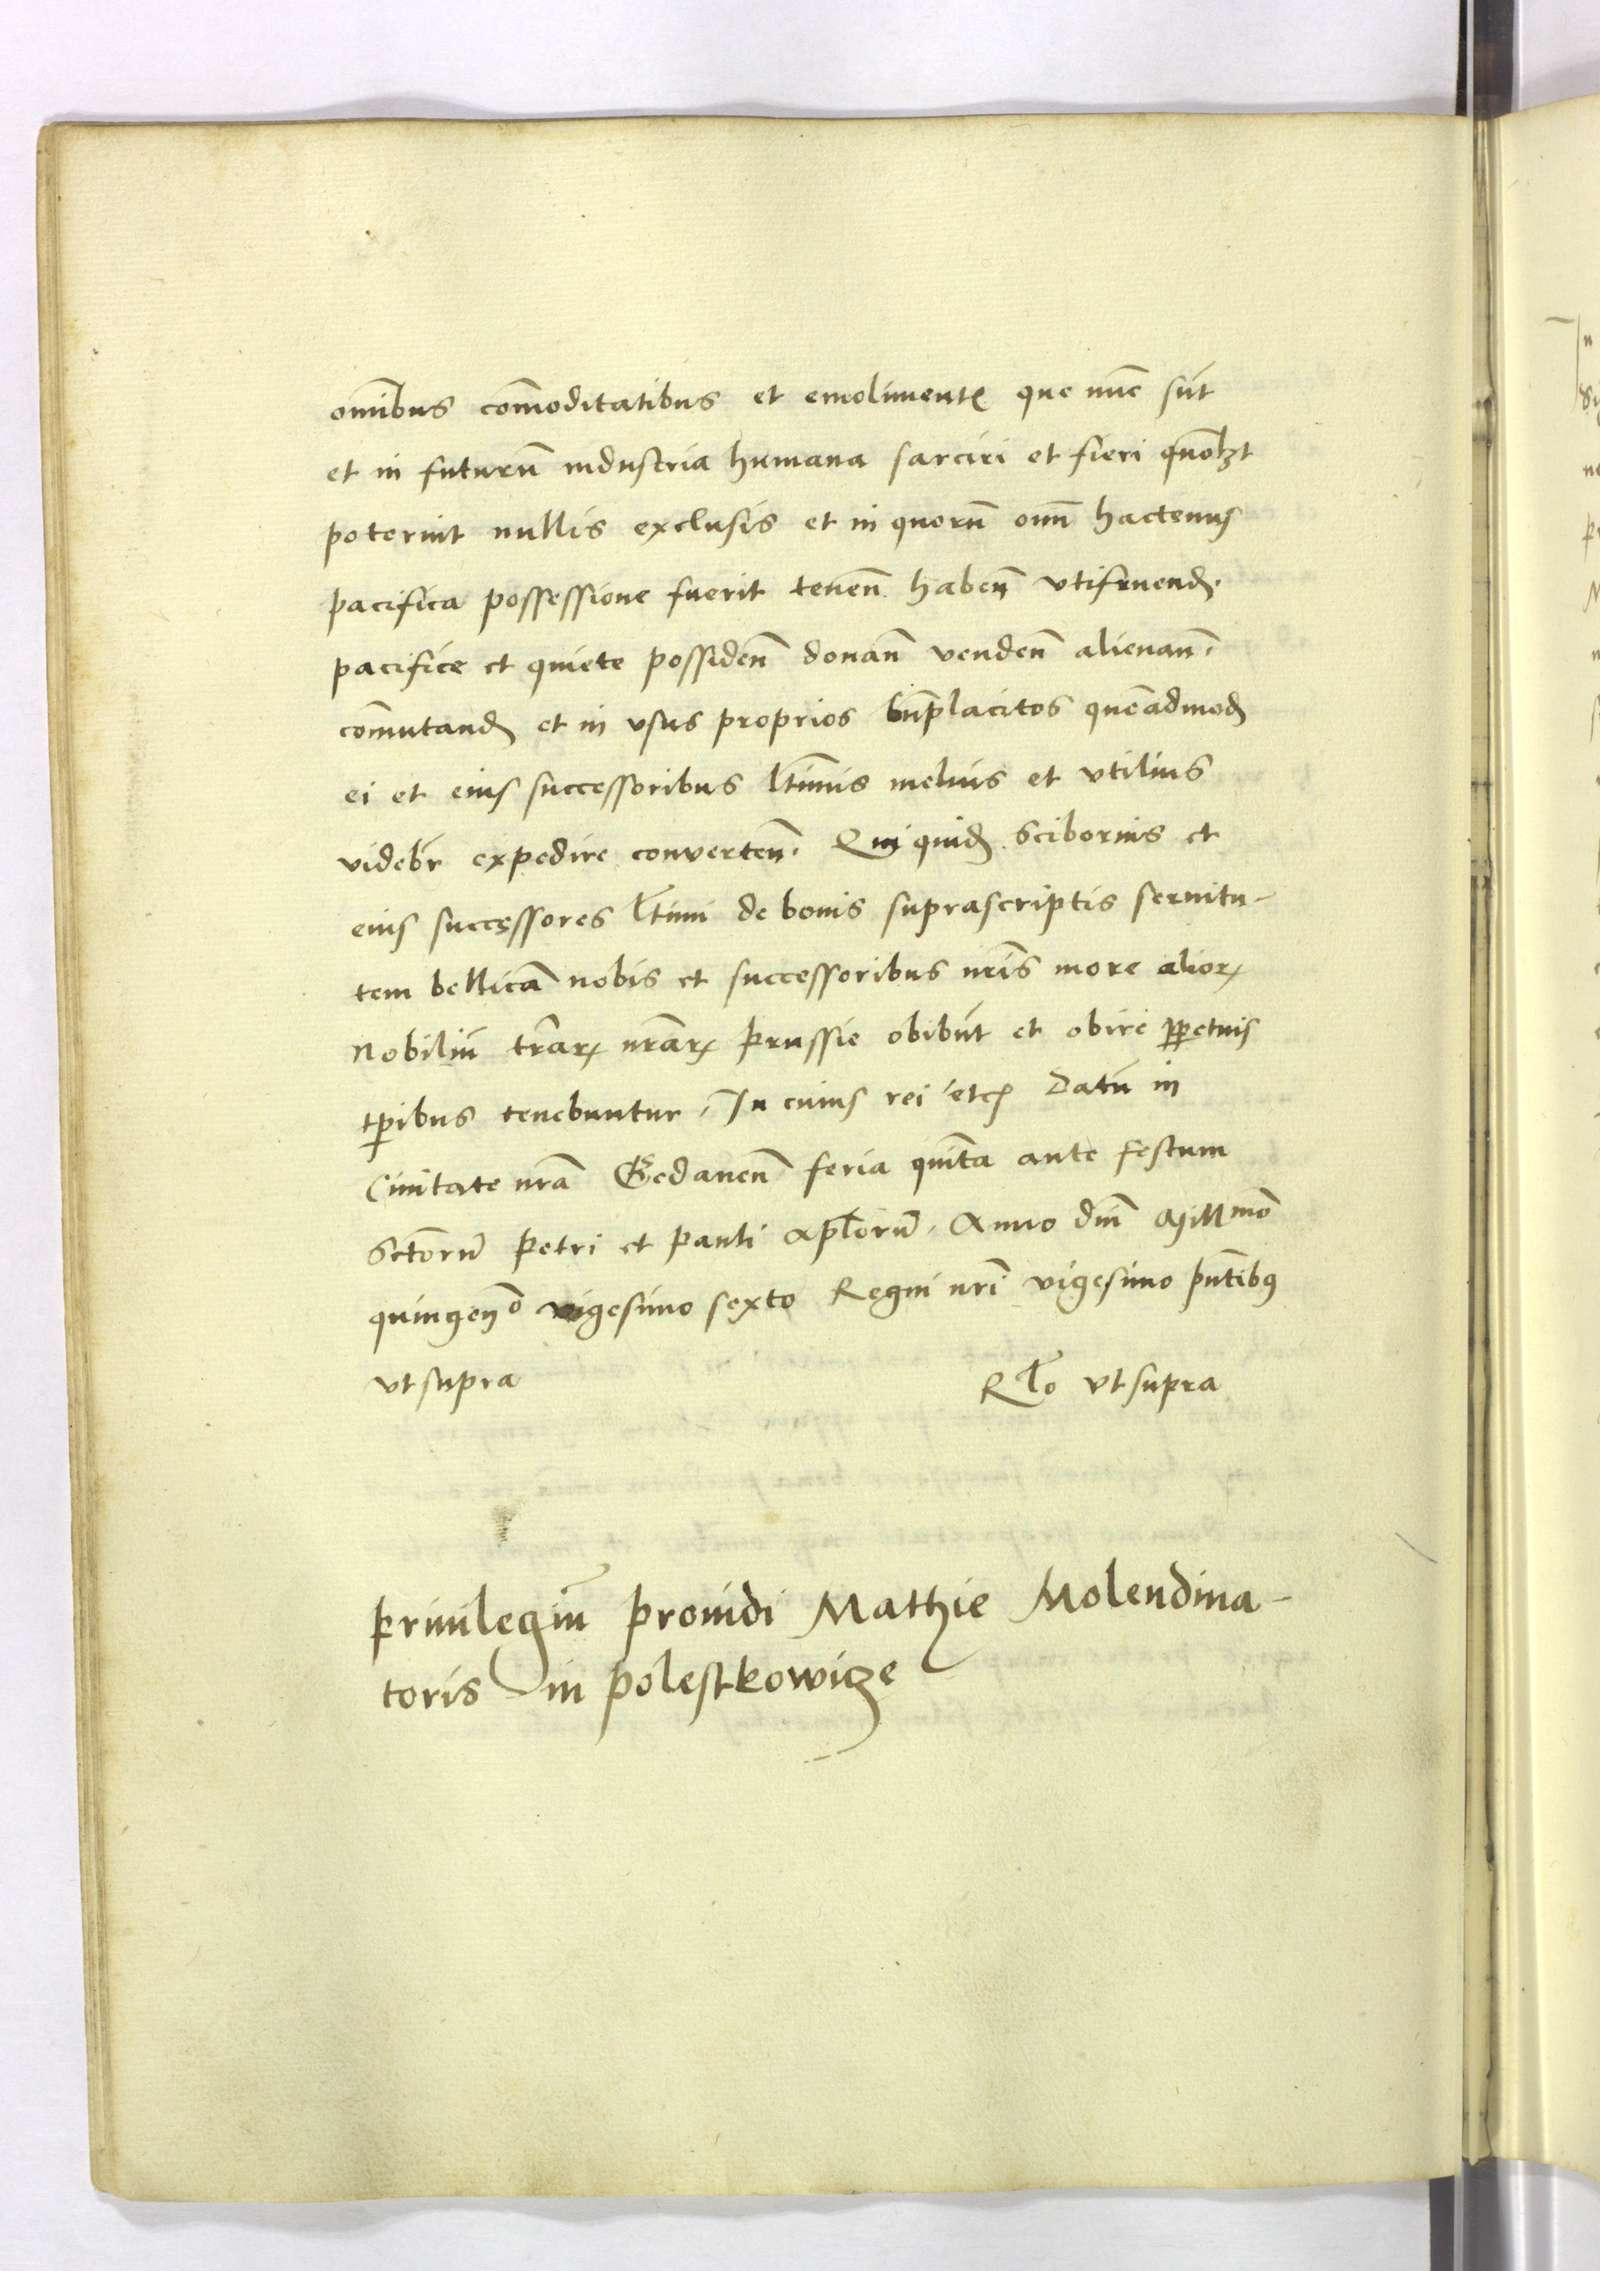 om̄ibus com̄oditatibus et emolimentꝭ que nūc sūt
et in futurū industria humana sarciri et fieri qūolꝫt
poterint nullis exclusis et in quorū om̄ hactenus
pacifica possessione fuerit tenen̄ haben̄ vtifruend.
pacifice et quiete possiden̄ donan̄ venden̄ alienan̄.
com̄utand et in vsus proprios bn̄placitos quēadmod
ei et eius successoribus ltīmis melius et vtilius
videbr̄ expedire converten̄. Quiquid Sciborius et
eius successores ltīmi de bonis suprascriptis seruitu-
tem bellicā nobis et successoribus nrīs more alioꝝ
Nobiliū trāꝝ nrāꝝ Prussie obibūt et obire ꝑpetuis
tꝑibus tenebuntur. In cuius rei etcꝭ Datū in
Ciuitate nrā Gedanen̄ feria quīta ante festum
Sctōrū Petri et Pauli Aplōrū. Anno dn̄i Millmō
quingenᵒ vigesimo sexto Regni nrī vigesimo pn̄tibꝰ
vt supra
Rlō vt supra
Priuilegiū Prouidi Mathie Molendina-
toris in Polestkowicze